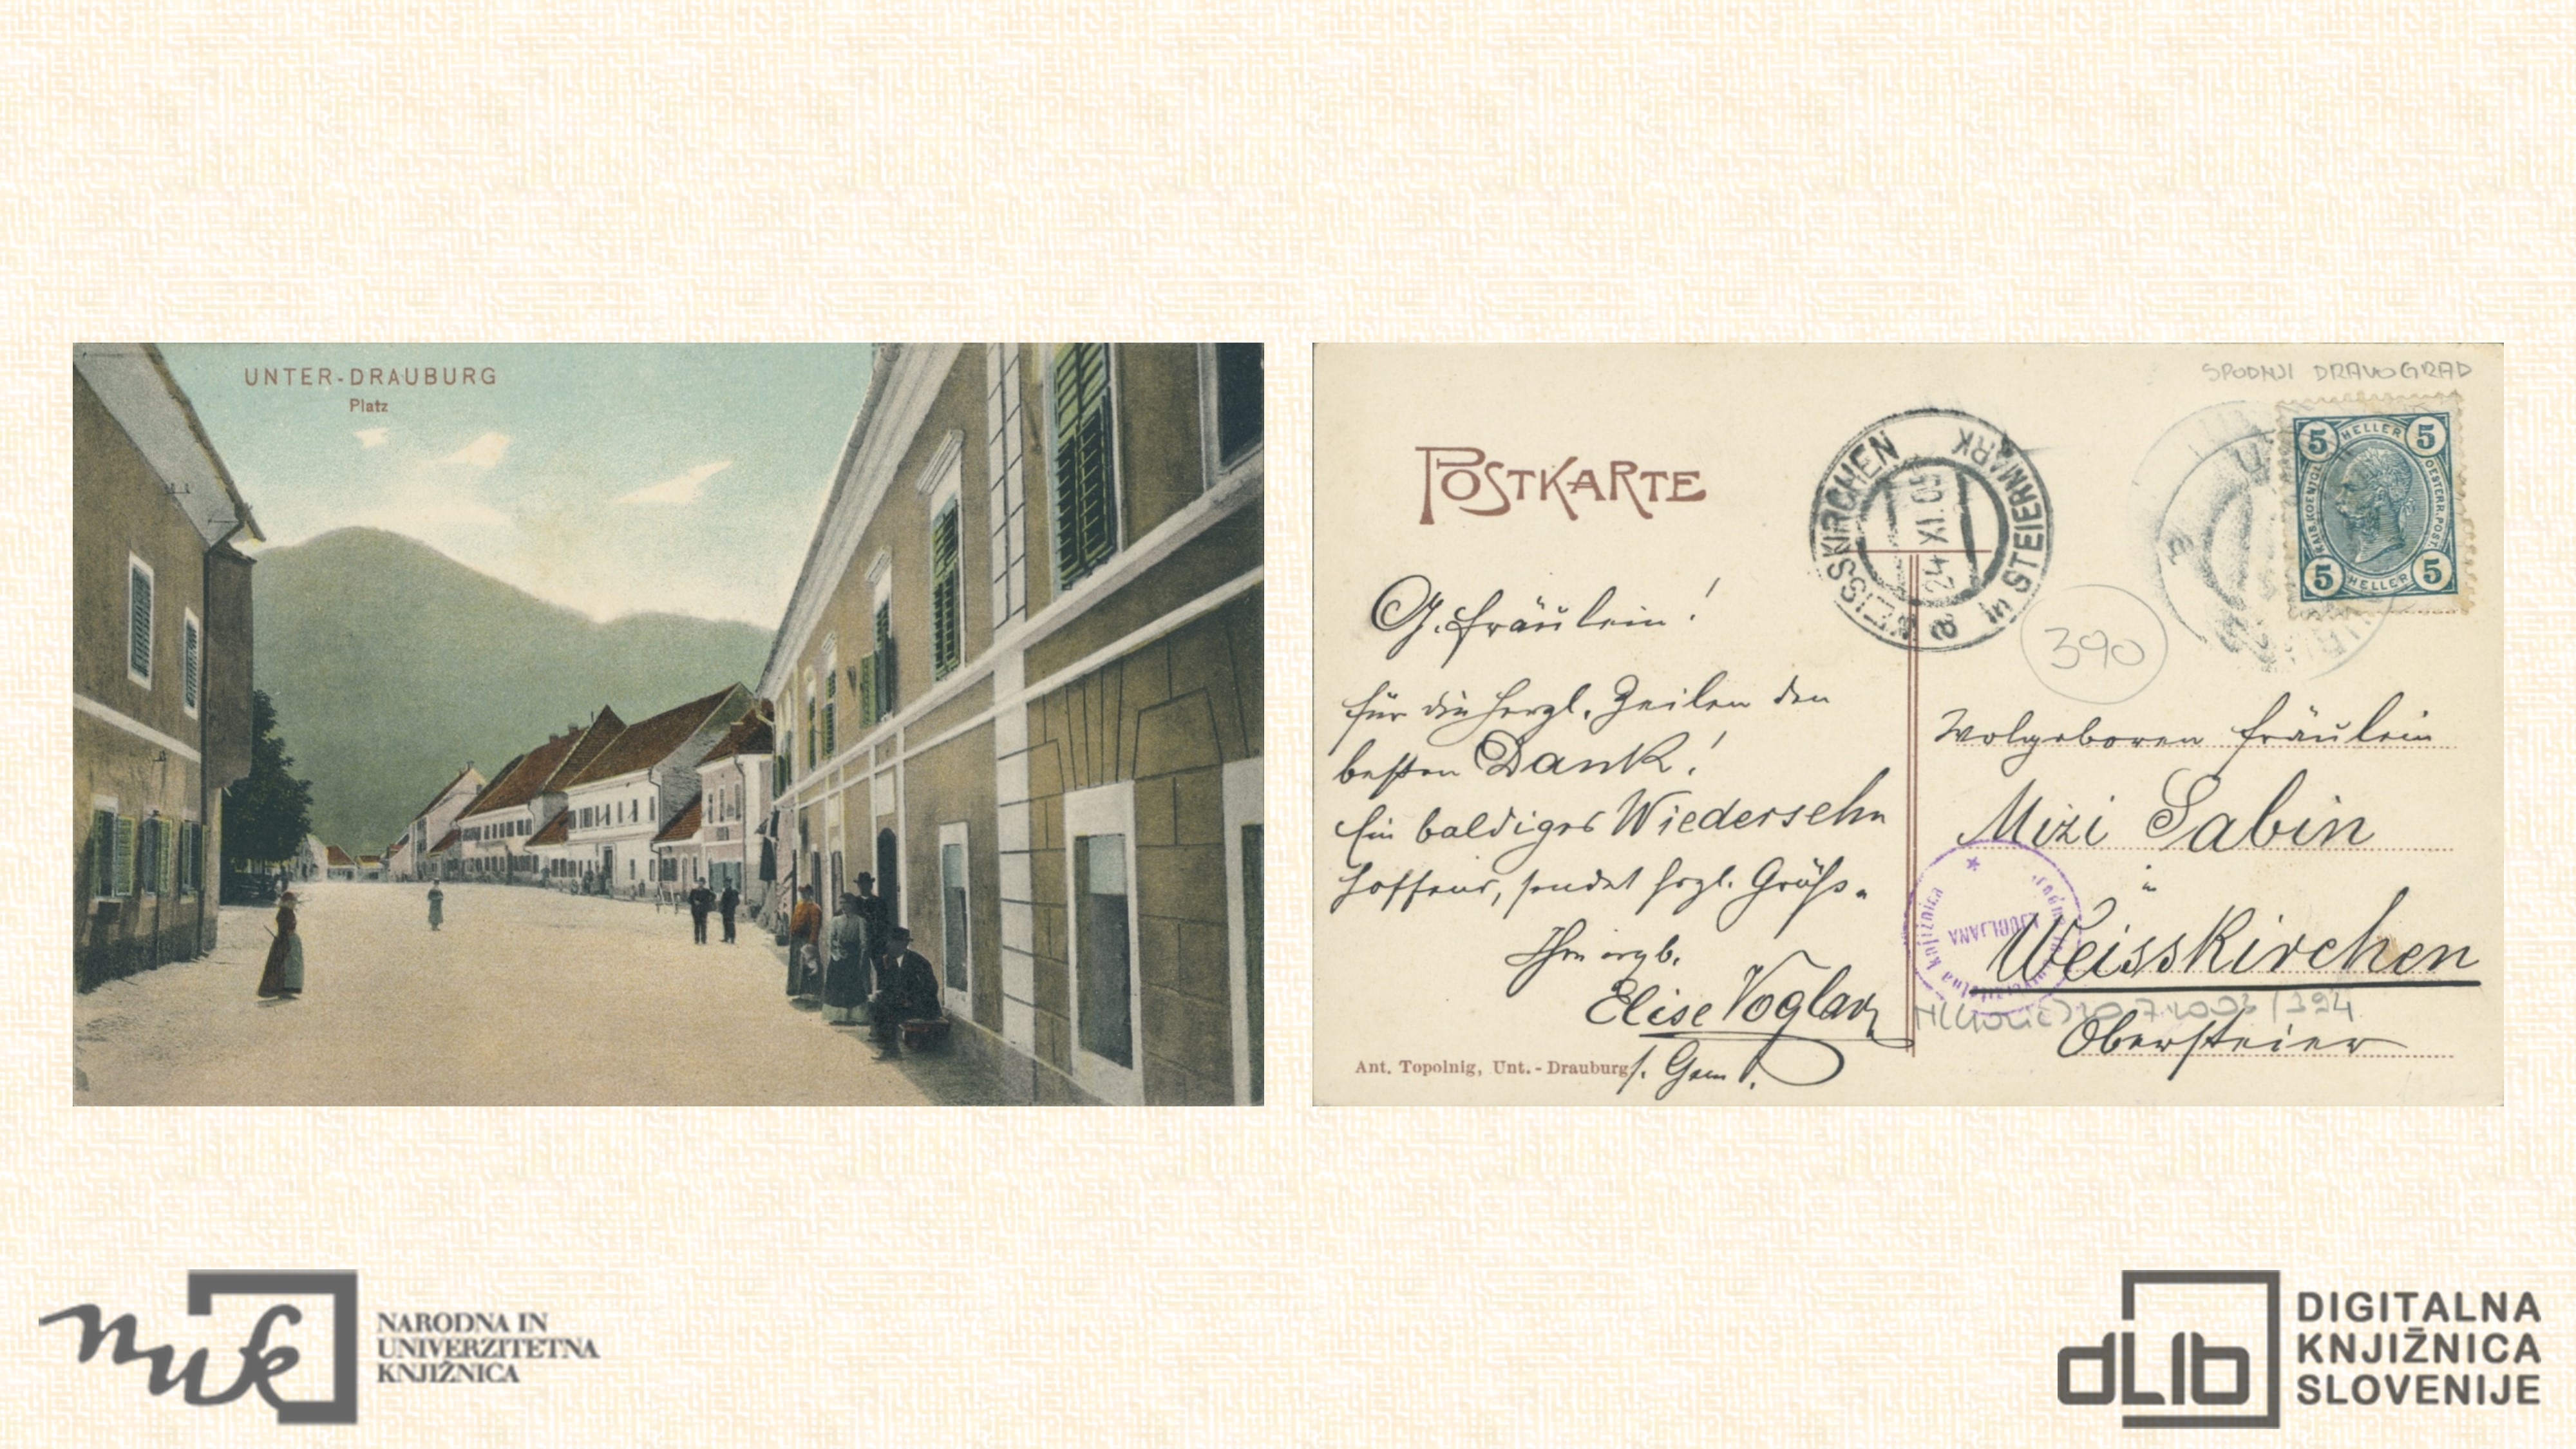 UNTER-DRAUBURG
Platz
SPODNJI DRAVOGRAD
POSTKARTE
WEISSKIRCHEN in STEIERMARK
24 XI 05
5 HELLER 5
KAIS. KOENIGL. OESTERR. POST.
5 HELLER 5
390
G. Fräulein!
für die herzl. Zeilen den
besten Dank!
Ein baldiges Wiedersehn
hoffend, sendet hrzl. Grüße
Ihre ergb.
Elise Voglar
Ant. Topolnig, Unt.-Drauburg
Wolgeboren Fräulein
Mizi Sabin
in
Weisskirchen
Obersteier
knjižnica
LJUBLJANA
nuk
NARODNA IN
UNIVERZITETNA
KNJIŽNICA
dLib
DIGITALNA
KNJIŽNICA
SLOVENIJE